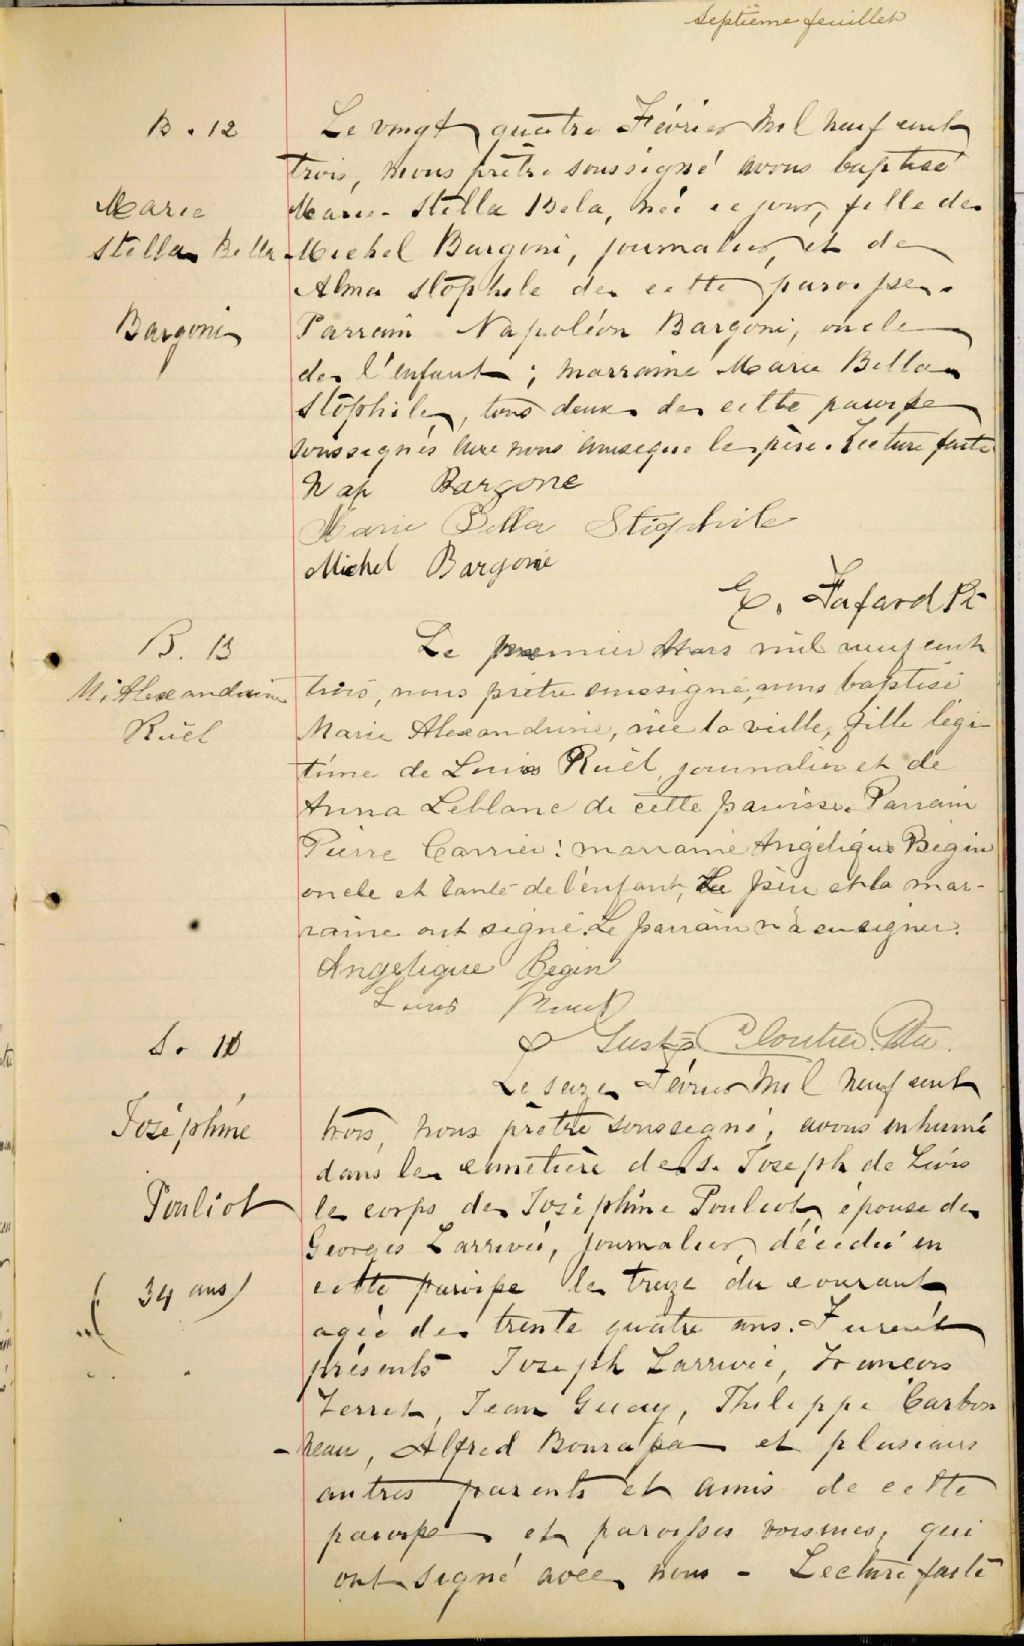 Septième feuillet
B. 12
Marie
Stella Bella
Bargoni
Le vingt quatre Février mil neuf cent
trois, nous prêtre soussigné avons baptisé
Marie-Stella Béla, née ce jour, fille de
Michel Bargoni, journalier, et de
Alma Stophile de cette paroisse.
Parrain Napoléon Bargoni, oncle
de l'enfant; marraine Marie Bella
Stophile, tous deux de cette paroisse
soussignés avec nous ainsique le père. Lecture faite
Nap Bargone
Marie Bella Stophile
Michel Bargone
E. Fafard Pt
B. 13
M. Alexandrine
Ruël
Le premier Mars mil neuf cent
trois, nous prêtre soussigné, avons baptisé
Marie Alexandrine, née la veille, fille légi-
time de Louis Ruël, journalier et de
Anna Leblanc de cette paroisse. Parrain
Pierre Carrier: marraine Angélique Bégin
oncle et tante de l'enfant, Le père et la mar-
raine ont signé. Le parrain n'a su signer.
Angelique Begin
Louis
Cloutier Ptre.
S. 10
Joséphine
Pouliot
(34 ans)
Le seize Février mil neuf cent
trois, nous prêtre soussigné, avons inhumé
dans le cimetière de S. Joseph de Lévis
le corps de Joséphine Pouliot, épouse de
Georges Larrivée, journalier, décédée en
cette paroisse le treize du courant
agée de trente quatre ans. Furent
présents Joseph Larrivée, Francois
Verret, Jean Guay, Philippe Carbon
-neau, Alfred Bourassa et plusieurs
autres parents et amis de cette
paroisse et paroisses voisines, qui
ont signé avec nous - Lecture faite